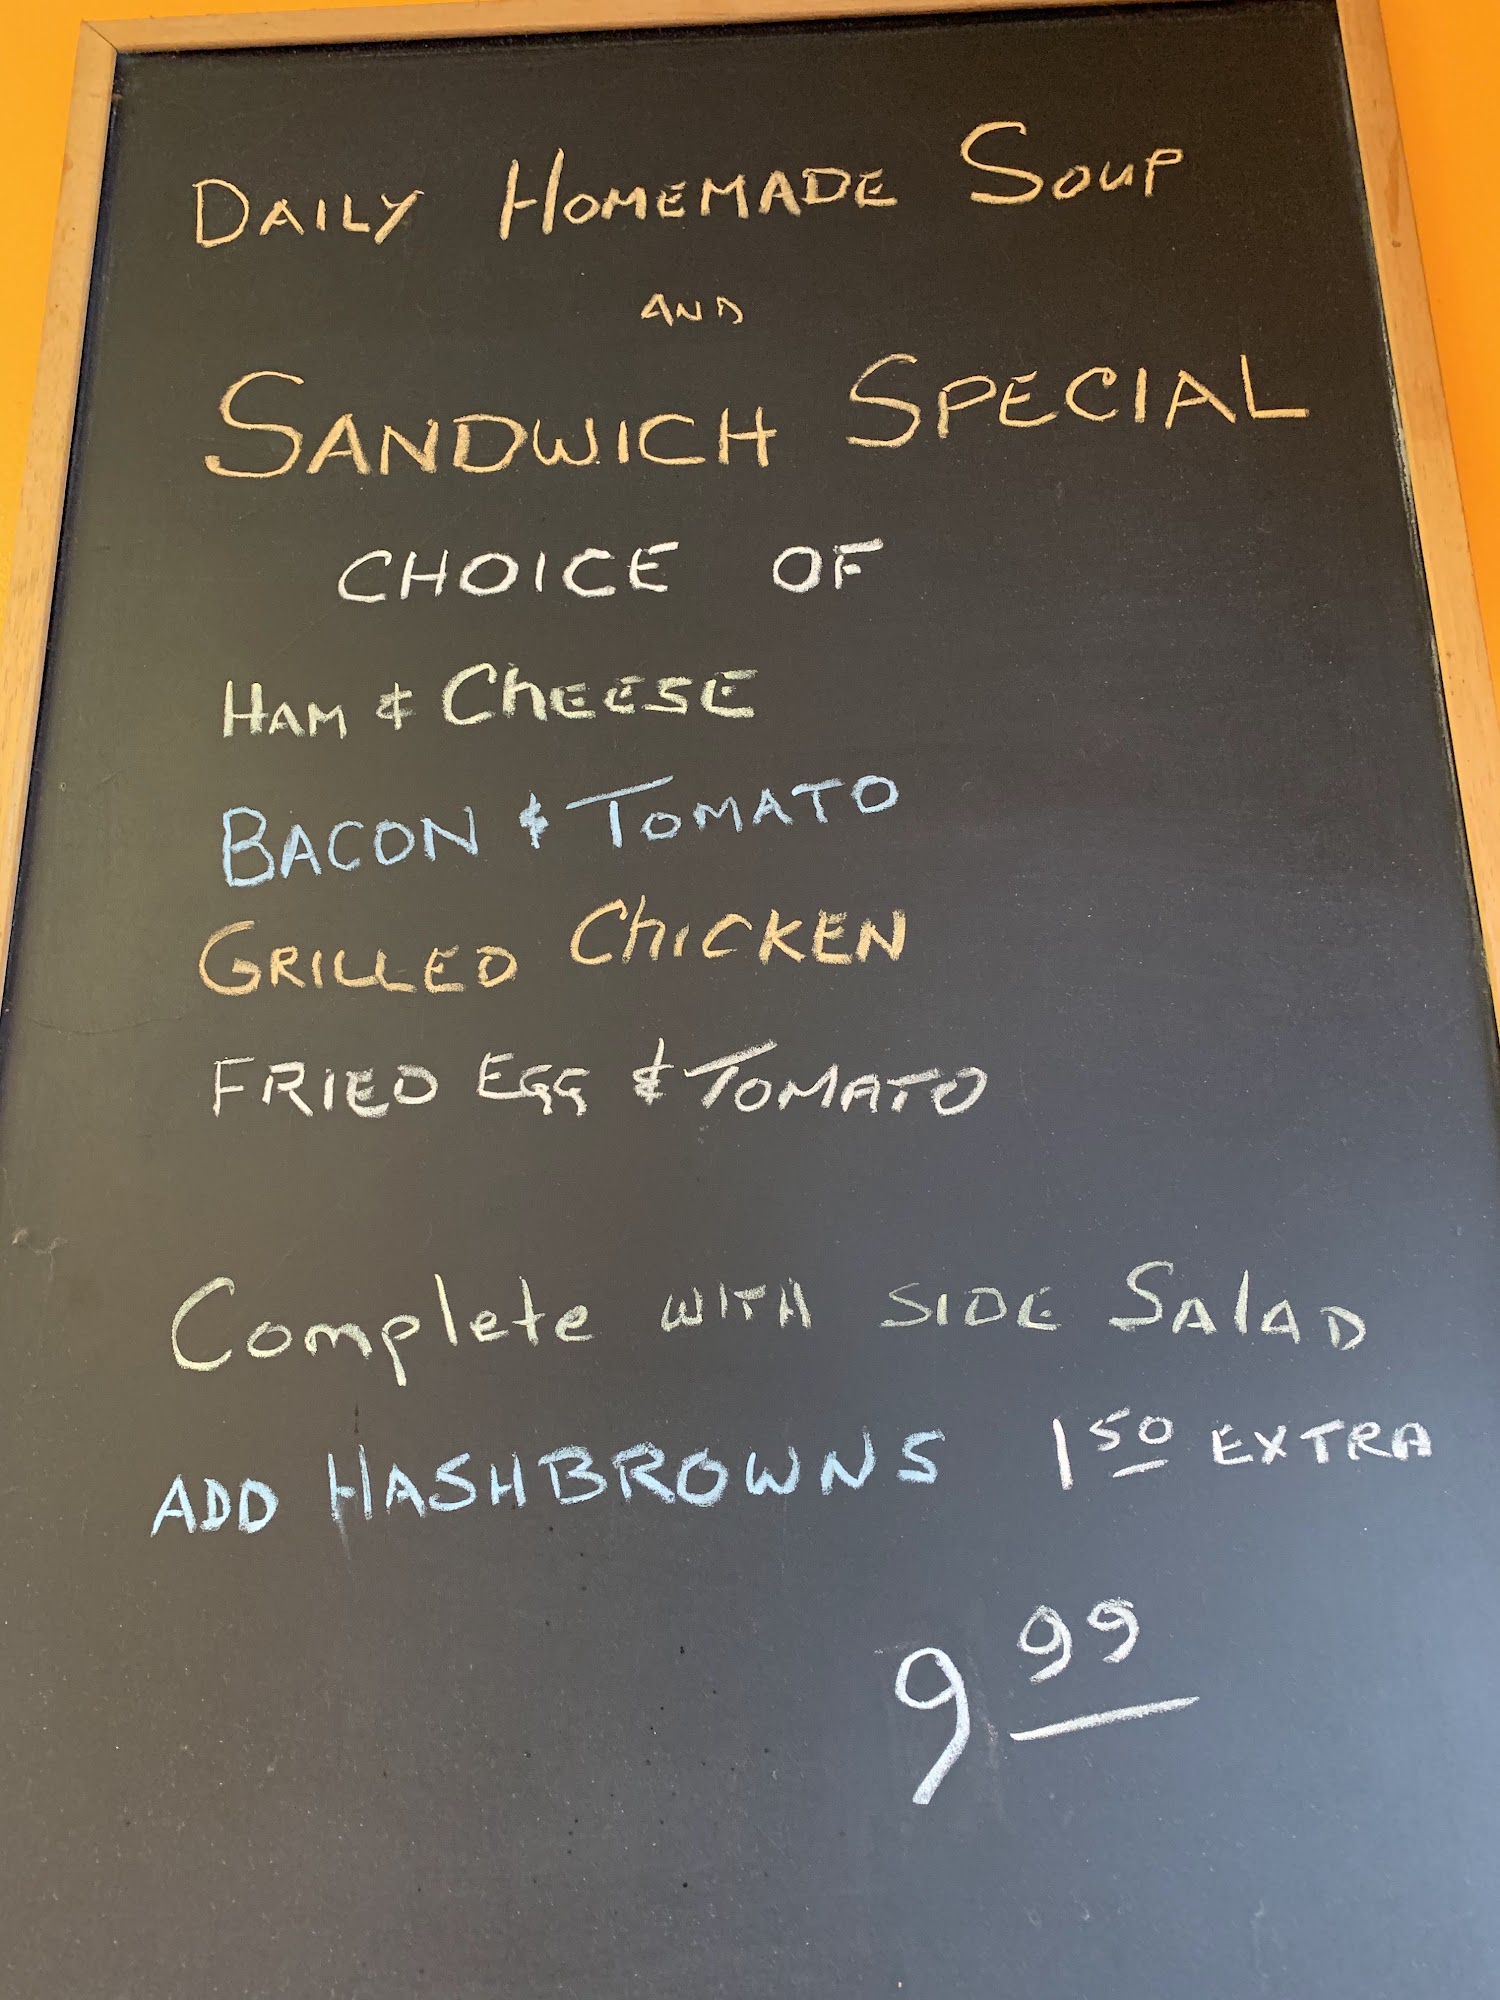 DAILY HOMEMADE SOUP
AND
SANDWICH SPECIAL
CHOICE OF
HAM & CHEESE
BACON & TOMATO
GRILLED CHICKEN
FRIED EGG & TOMATO
Complete WITH SIDE SALAD
ADD HASHBROWNS 1 50 EXTRA
9 99